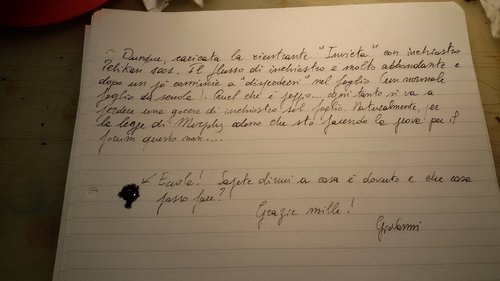 Dunque, caricata la rientrante "Invicta" con inchiostro
Pelikan 4001. Il flusso di inchiostro è molto abbondante e
dopo un po' comincia a "disperdersi" nel foglio (un normale
foglio da scuola). Quel ch'è peggio... ogni tanto si va a
perdere una goccia di inchiostro sul foglio. Naturalmente, per
la legge di Murphy adesso che sto facendo la prova per il
forum questo non....
Eccola! Sapete dirmi a cosa è dovuto e che cosa
posso fare?
Grazie mille!
Giovanni